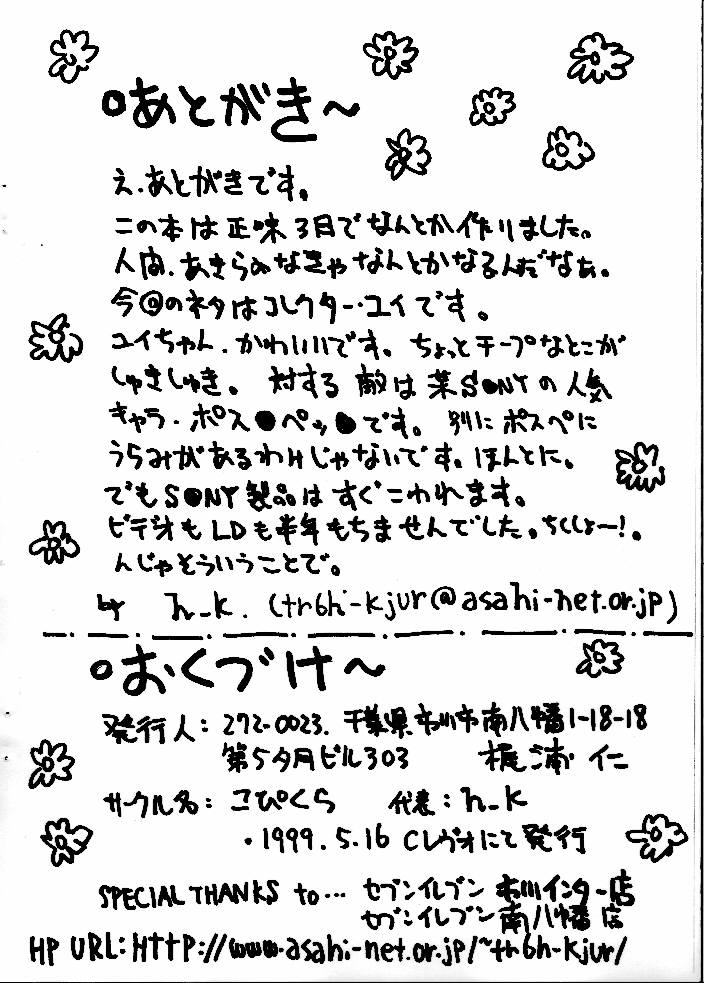 ○あとがき～
え、あとがきです。
この本は正味3日でなんとか作りました。
人間、あきらめなきゃなんとかなるんだなぁ。
今回のネタはコレクター・ユイです。
ユイちゃん、かわいいです。ちょっとチープなとこが
しゅきしゅき。 対する敵は某S●NYの人気
キャラ・ポス●ペッ●です。別にポスペに
うらみがあるわけじゃないです。ほんとに。
でもS●NY製品はすぐこわれます。
ビデオもLDも半年もちませんでした。ちくしょー!。
んじゃそういうことで。
by h_k. (tr6h-kjur@asahi-net.or.jp)
○おくづけ～
発行人: 272-0023. 千葉県市川市南八幡1-18-18
第5夕月ビル303 梶浦 仁
サークル名: こぴくら 代表: h_k
・1999.5.16 Cレヴォにて発行
SPECIAL THANKS to… セブンイレブン 市川インター店
セブンイレブン 南八幡店
HP URL: HTTP://www.asahi-net.or.jp/~tr6h-kjur/